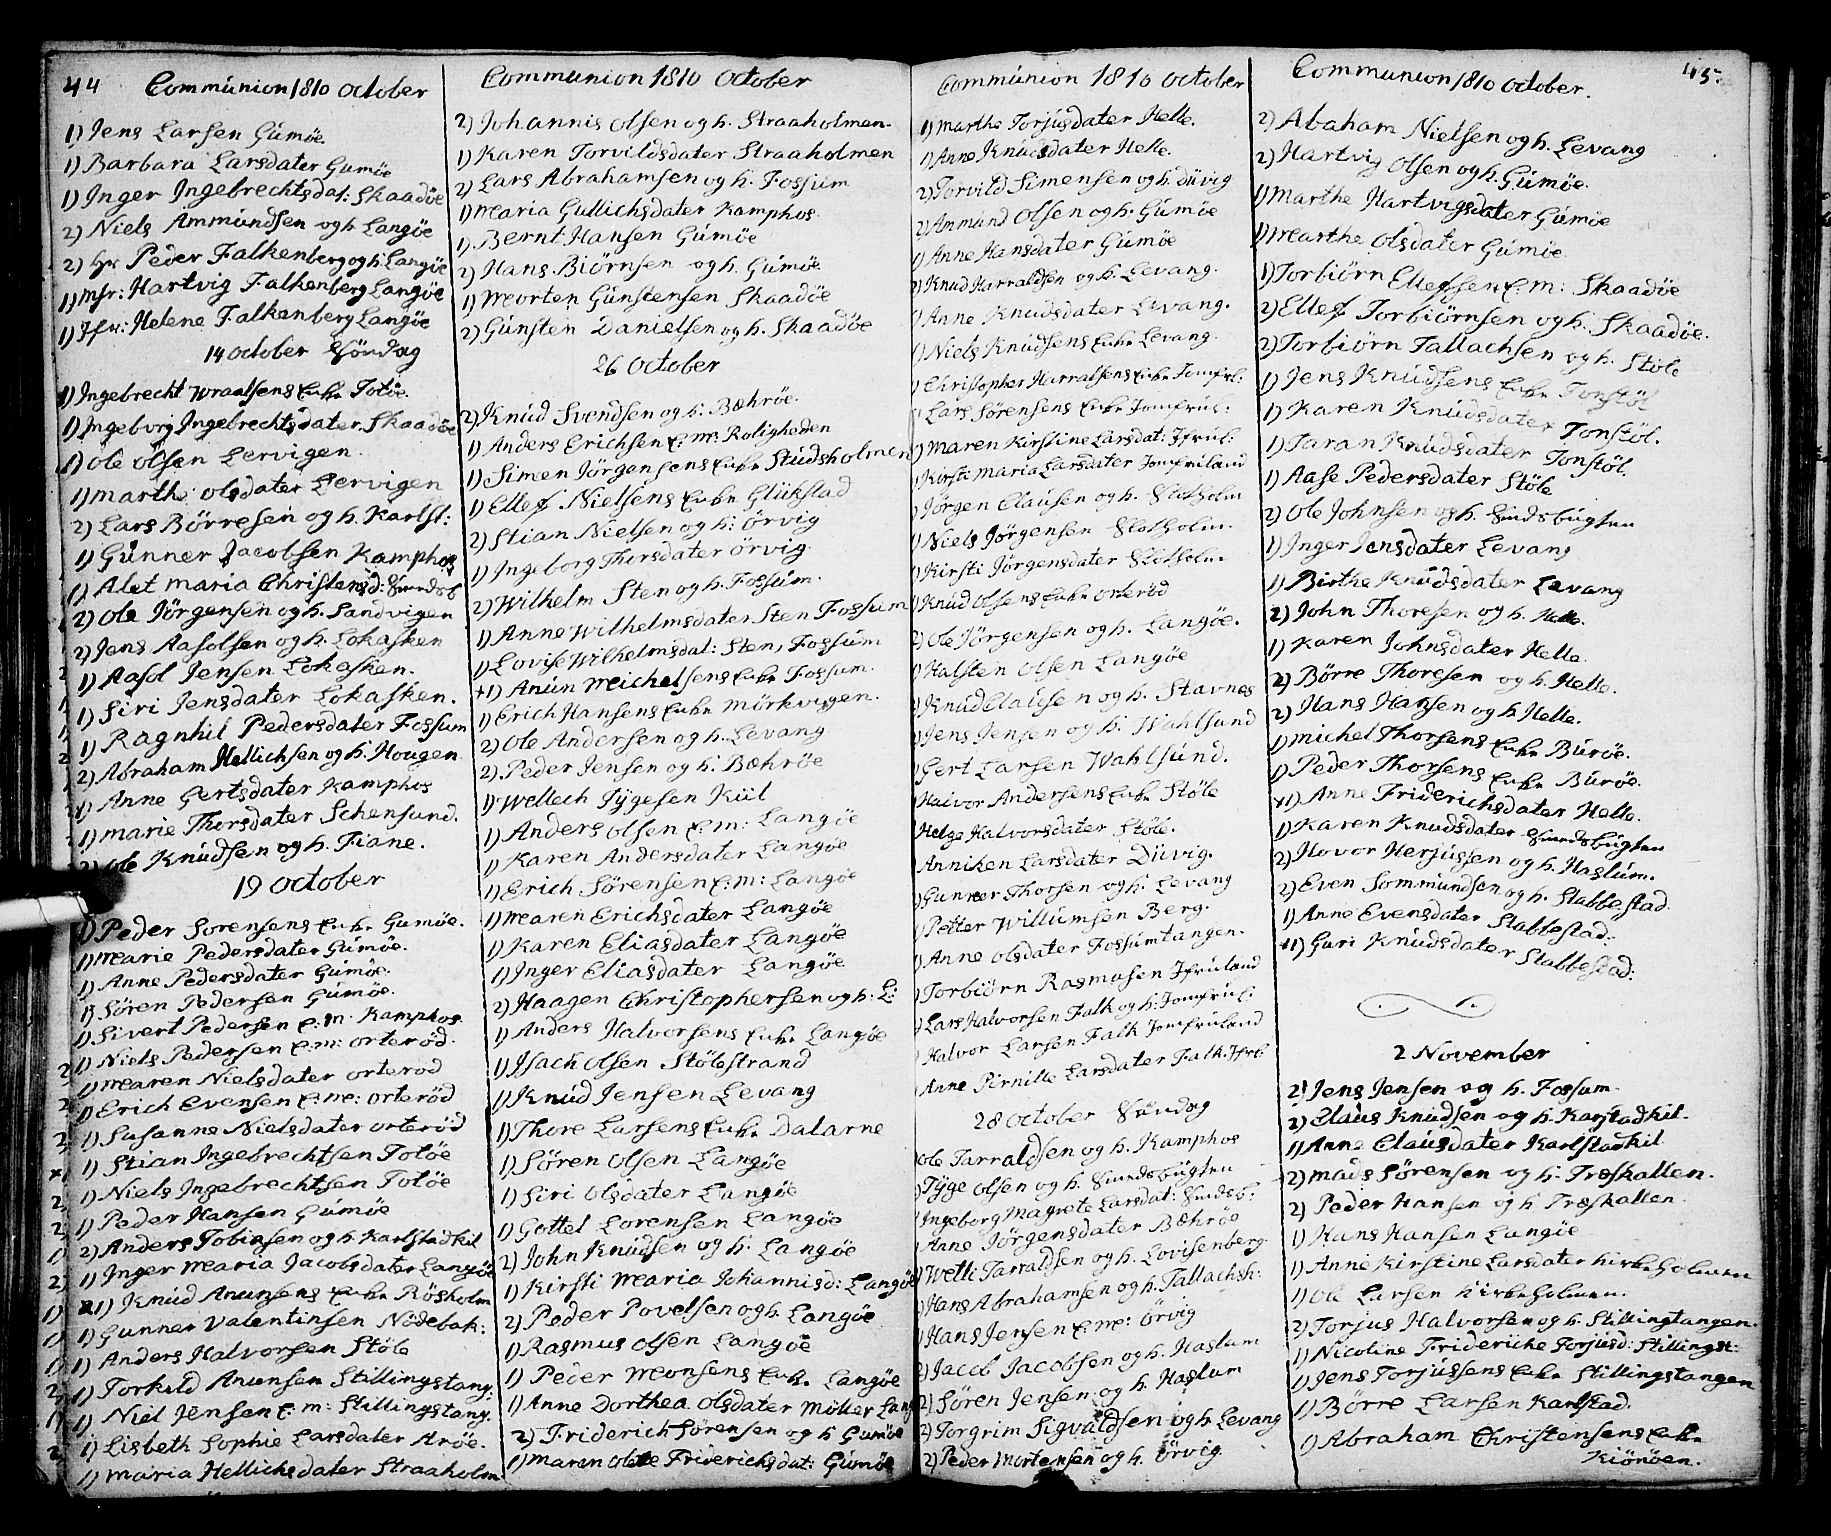 44 Communion 1810 October
1) Jens Larsen Gumøe
1) Barbara Larsdater Gumøe
1) Inger Ingebrechtsdat: Skaadøe
2) Niels Ammundsen og h. Langøe
2) Hr Peder Falkenberg og h. Langøe
1) Msr: Hartvig Falkenberg Langøe
1) Jfr: Helene Falkenberg Langøe
14 October Søndag
1) Ingebrecht Wraalsens Enke Totøe
1) Ingeborg Ingebrechtsdater Skaadøe
1) Ole Olsen Lervigen
1) Marthe Olsdater Lervigen
2) Lars Børresen og h. Karlst:
1) Gunner Jacobsen Kamphos
1) Alet Maria Christensd: Sundsb
2) Ole Jörgensen og h. Sandvigen
2) Jens Aasolsen og h. Lokasken
1) Aasol Jensen Lokasken.
1) Siri Jensdater Lokasken.
1) Ragnhil Pedersdater Fossum
2) Abraham Hellichsen og h. Hougen
1) Anne Gertsdater Kamphos
1) Marie Thorsdater Schensund.
2) Ole Knudsen og h. Fiane.
19 October
1) Peder Sørensens Enke Gumøe.
1) Marie Pedersdater Gumøe.
1) Anne Pedersdater Gumøe.
1) Sören Pedersen Gumøe.
1) Sivert Pedersen E: M: Kamphos.
1) Niels Pedersen E: m: Orterød.
1) Maren Nielsdater Orterød
1) Erich Evensen E: m: Orterød
1) Susanne Nielsdater Orterød
1) Stian Ingebrechtsen Totøe
1) Niels Ingebrechtsen Totøe
1) Peder Hansen Gumøe
2) Anders Tobiesen og h. Karlstadkil
1) Inger Maria Jacobsdater Langøe
1) Knud Anunsens Enke Røsholm
1) Gunner Valentinsen Nødebak:
1) Anders Halvorsen Støle
1) Torkild Anunsen Stillingstang:
1) Niel Jensen E: m: Stillingstang:
1) Lisbeth Sophie Larsdater Arøe.
1) Maria Hellichsdater Straaholm
Communion 1810 October
2) Johannis Olsen og h. Straaholmen
1) Karen Torvildsdater Straaholmen
2) Lars Abrahamsen og h. Fossum
1) Maria Gullichsdater Kamphos
1) Bernt Hansen Gumøe
2) Hans Biörnsen og h. Gumøe
1) Morten Gunstensen Skaadøe
2) Gunsten Danielsen og h. Skaadøe
26 October
2) Knud Svendsen og h. Bæhrøe.
1) Anders Erichsen E: m: Roligheden
1) Simen Jörgensens Enke Studsholmen
1) Ellef Nielsens Enke Glükstad
2) Stian Nielsen og h: Örvig
1) Ingeborg Thorsdater Örvig
2) Wilhelm Sten og h. Fossum.
1) Anne Wilhelmsdater Sten Fossum
1) Lovise Wilhelmsdat: Sten, Fossum
+1) Anun Meichelsens Enke Fossum.
1) Erich Hansens Enke Mörkvigen.
2) Ole Andersen og h. Levang
2) Peder Jensen og h. Bæhrøe
1) Wellech Tygesen Kiil
1) Anders Olsen E: m: Langøe
1) Karen Andersdater Langøe
1) Erich Sörensen E: m: Langøe
1) Maren Erichsdater Langøe
1) Karen Eliasdater Langøe
1) Inger Eliasdater Langøe
2) Haagen Christophersen og h: L:
1) Anders Halvorsens Enke Langøe
1) Isach Olsen Stølestrand
1) Knud Jensen Levang
1) Thore Larsens Enke Dalarne
1) Sören Olsen Langøe
1) Siri Olsdater Langøe
1) Gottel Lorensen Langøe
2) John Knudsen og h. Langøe
1) Kirsti Maria Johannisd: Langøe
2) Peder Povelsen og h. Langøe
1) Rasmus Olsen Langøe
1) Peder Monsens Enke Langøe
1) Anne Dorthea Olsdater Möller Lang
2) Friderich Sörensen og h Gumøe
1) Maren Olete Friderichsdat: Gumøe
Communion 1810 October
1) Marthe Torjusdater Helle.
1) Anne Knudsdater Helle.
2) Torvild Simensen og h. Düvig
2) Ammund Olsen og h. Gumøe
1) Anne Hansdater Gumøe
2) Knud Harraldsen og h. Levang.
1) Anne Knudsdater Levang.
1) Niels Knudsens Enke Levang.
1) Christopher Harralsens Enke Jomfrl:
1) Lars Sörensens Enke Jomfrul:
1) Maren Kirstine Larsdat: Jfrul:
1) Kirsti Maria Larsdater Jomfruland
Jörgen Clausen og h. Slotholm
1) Niels Jörgensen Slotholm.
1) Kirsti Jörgensdater Slotholm
1) Knud Olsens Enke Orterød
2) Ole Jörgensen og h. Langøe.
1) Halsten Olsen Langøe
Knud Clausen og h. Stavnes
Jens Jensen og h. Wahlsund
Gert Larsen Wahlsund.
Halvor Andersens Enke Støle
Helge Halvorsdater Støle.
Anniken Larsdater Düvig.
Gunner Thorsen og h. Levang
Petter Willumsen Berg.
Anne Olsdater Fossumtangen.
Torbiörn Rasmusen Jfruland
Lars Halvorsen Falk og h: Jomfrul:
Halvor Larsen Falk Jomfruland
Anne Pirnille Larsdater Falk Jfrl
28 October Söndag
Ole Tarraldsen og h. Kamphos
Tyge Olsen og h. Sundsbugten
Ingeborg Magrete Larsdat: Sundsb:
Anne Jörgensdater Bæhrøe
Wetli Tarraldsen og h. Lovisenberg.
Hans Abrahamsen og h. Tallachsh:
Hans Jensen E: m: Örvig
Jacob Jacobsen og h. Haslum
2) Sören Jensen og h. Haslum
2) Torgrim Sigvaldsen og h. Levang
2) Peder Mortensen og h. Örvig
Communion 1810 October. 45.
2) Abaham Nielsen og h. Levang
2) Hartvig Olsen og h. Gumøe.
1) Marthe Hartvigsdater Gumøe
1) Marthe Olsdater Gumøe.
1) Torbiörn Ellefsen E: m: Skaadøe
2) Ellef Torbiörnsen og h. Skaadøe.
2) Torbiörn Tallachsen og h. Støle
1) Jens Knudsens Enke Tonstøl
1) Karen Knudsdater Tonstøl.
1) Taran Knudsdater Tonstøl.
1) Aase Pedersdater Støle
2) Ole Johnsen og h. Sundsbugten
1) Inger Jensdater Levang
1) Birthe Knudsdater Levang
2) John Thoresen og h. Helle.
1) Karen Johnsdater Helle.
2) Börre Thoresen og h. Helle.
2) Hans Hansen og h Helle.
1) Michel Thorsens Enke Burøe.
1) Peder Thorsens Enke Burøe.
+1) Anne Friderichsdater Helle.
1) Karen Knudsdater Sundsbugten
2) Hovor Herjussen og h. Haslum.
2) Even Sommundsen og h. Stabbestad.
1) Anne Evensdater Stabbestad:
+1) Guri Knudsdater Stabbestad:
2 November
2) Jens Jensen og h. Fossum.
2) Claus Knudsen og h. Karstadkil.
1) Anne Clausdater Karlstadkil
2) Mads Sörensen og h. Træskallen.
2) Peder Hansen og h Træskallen.
1) Hans Hansen Langøe
1) Anne Kirstine Larsdater Kirkeholmen
1) Ole Larsen Kirkeholmen.
2) Torjus Halvorsen og h. Stillingtangen.
1) Nicoline Fridericke Torjusd: Stillingst:
1) Jens Torjussens Enke Stillingstangen
1) Börre Larsen Karlstad.
1) Abraham Christensens Enke
Kiönöen.